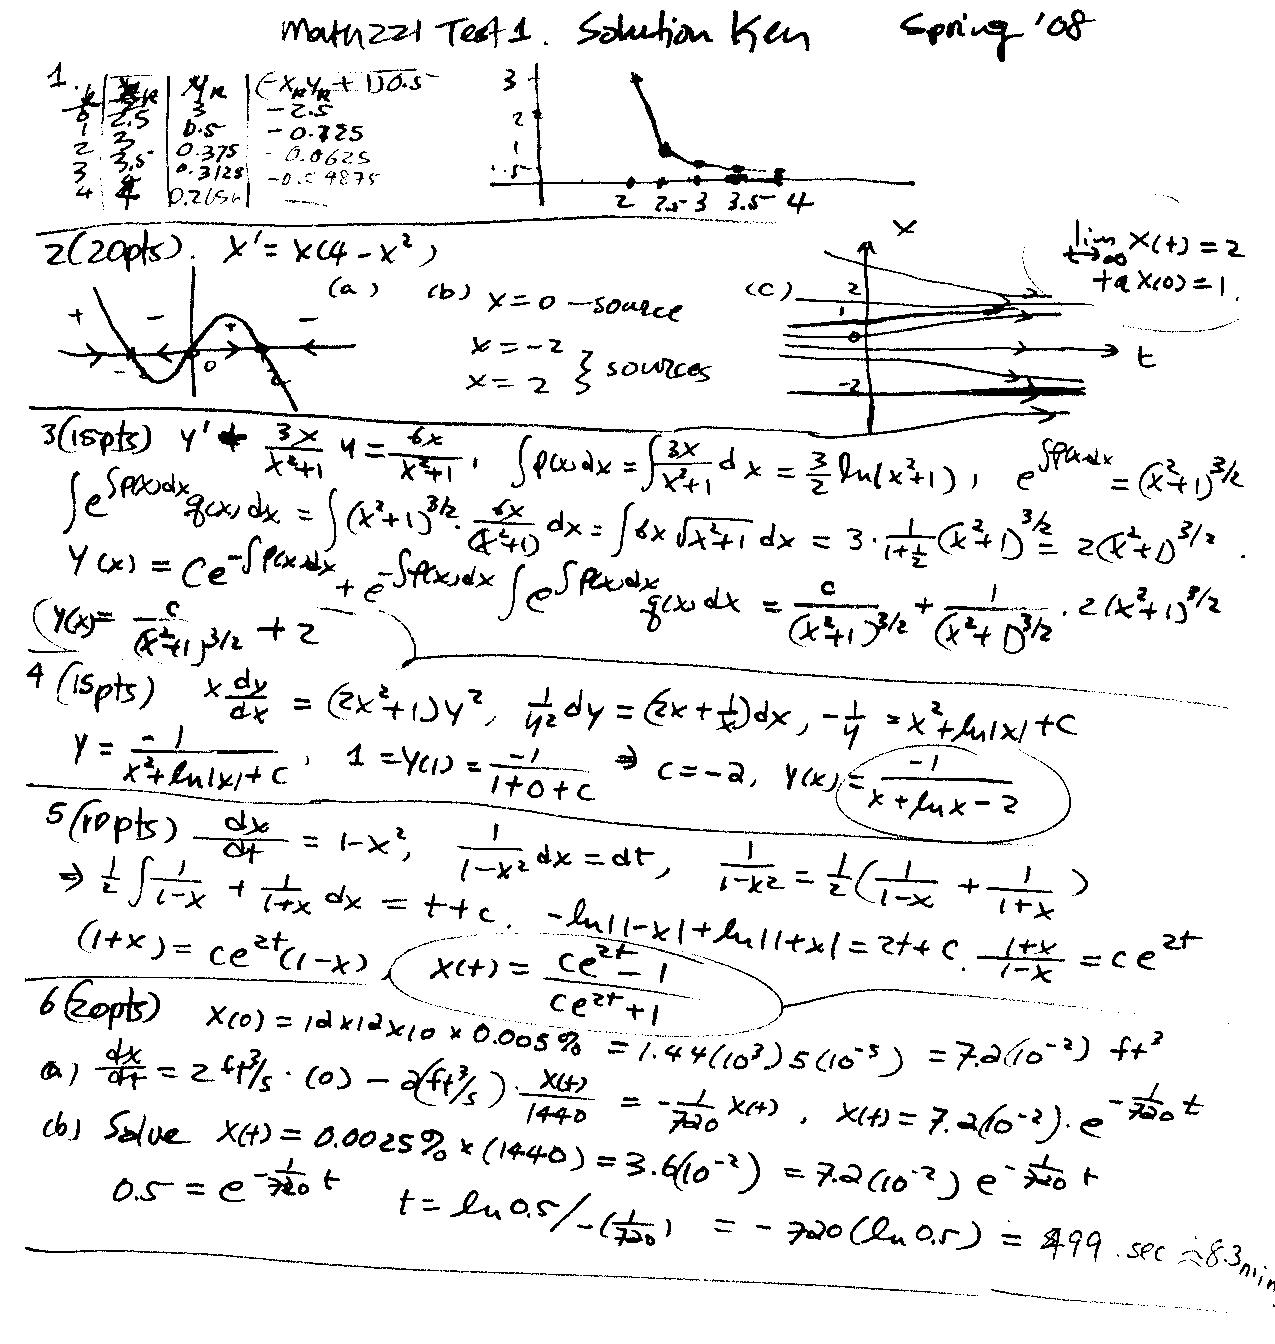 Math 221 Test 1. Solution Key Spring '08
1. k | x_k | y_k | (-x_k y_k + 1)0.5
0 2.5 3 -2.5
1 0.5 -0.125
2 3 0.375 -0.0625
3 3.5 0.3125
4 4
3 2 1 .5
2 2.5 3 3.5 4
2(20pts). x' = x(4 - x²)
(a) (b) x = 0 — source
x = -2
x = 2 } sources
+ - + -
0 2
(c) x 2 1 0 -2 t
lim t→∞ x(t) = 2
x(0) = 1.
3(15pts) y' + 3x/(x²+1) y = 6x/(x²+1), ∫p(x)dx = ∫3x/(x²+1) dx = 3/2 ln(x²+1), e^{∫p(x)dx} = (x²+1)^{3/2}
∫e^{∫p(x)dx} q(x)dx = ∫(x²+1)^{3/2} · 6x/(x²+1) dx = ∫6x√(x²+1) dx = 3 · 1/(1+½) (x²+1)^{3/2} = 2(x²+1)^{3/2}.
y(x) = Ce^{-∫p(x)dx} + e^{-∫p(x)dx} ∫e^{∫p(x)dx} q(x)dx = c/(x²+1)^{3/2} + 1/(x²+1)^{3/2} · 2(x²+1)^{3/2}
y(x) = c/(x²+1)^{3/2} + 2
4 (15pts) x dy/dx = (2x²+1)y², 1/y² dy = (2x + 1/x)dx, -1/y = x² + ln|x| + c
y = -1/(x² + ln|x| + c), 1 = y(1) = -1/(1+0+c) ⇒ c = -2, y(x) = -1/(x + ln x - 2)
5 (10pts) dx/dt = 1-x², 1/(1-x²) dx = dt, 1/(1-x²) = ½(1/(1-x) + 1/(1+x))
⇒ ½∫1/(1-x) + 1/(1+x) dx = t+c. -ln|1-x| + ln|1+x| = 2t+c. (1+x)/(1-x) = ce^{2t}
(1+x) = ce^{2t}(1-x), x(t) = (ce^{2t} - 1)/(ce^{2t} + 1)
6 (20pts) x(0) = 12x12x10 x 0.005% = 1.44(10³)5(10⁻⁵) = 7.2(10⁻²) ft³
a) dx/dt = 2 ft³/s · (0) - 2(ft³/s) · x(t)/1440 = -1/720 x(t), x(t) = 7.2(10⁻²) · e^{-1/720 t}
(b) Solve x(t) = 0.0025% x (1440) = 3.6(10⁻²) = 7.2(10⁻²) e^{-1/720 t}
0.5 = e^{-1/720 t} t = ln 0.5/-(1/720) = -720(ln 0.5) = 499. sec ≈ 8.3 min